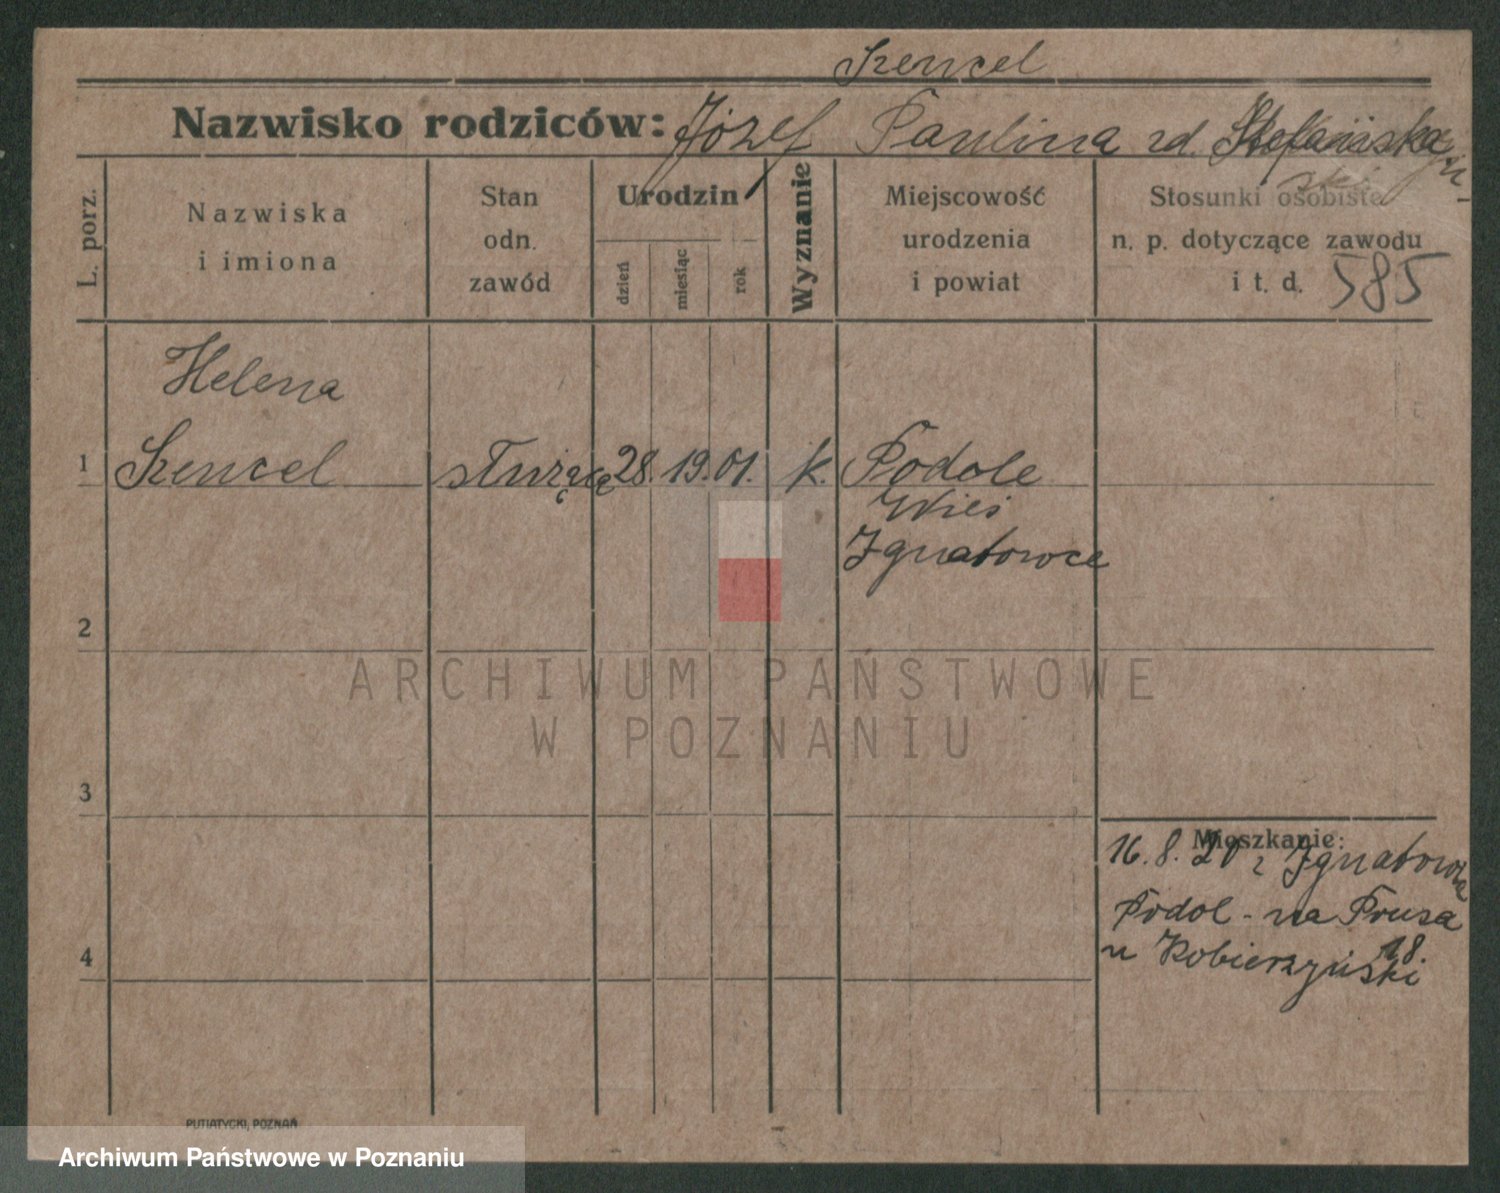 Szencel
Nazwisko rodziców: Józef Paulina zd.
L. porz.
Nazwiska
i imiona
Stan
odn.
zawód
Urodzin
dzień
miesiąc
rok
Wyznanie
Miejscowość
urodzenia
i powiat
Stosunki osobiste
n. p. dotyczące zawodu
i t. d. 585
Helena
1 Szencel służąca 28. 19.01. k. Podole
Wieś
Ignatowce
2
3
4
Mieszkanie:
16.8. 20 z Ignatowca
Podol - na Prusa
18.
u Kobierzyński
PUTIATYCKI, POZNAŃ
ARCHIWUM PAŃSTWOWE
W POZNANIU
Archiwum Państwowe w Poznaniu